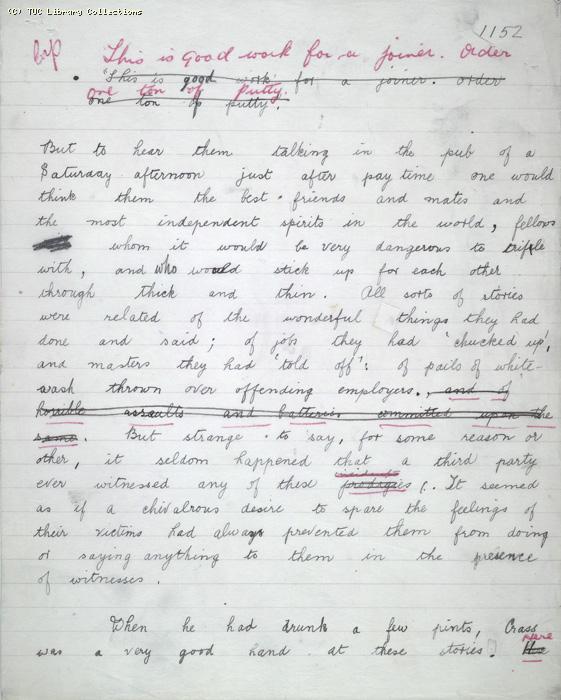 (C) TUC Library Collections
1152
This is good work for a joiner. Order
"This is good work for a joiner. Order
one ton of Putty.
one ton of putty."
But to hear them talking in the pub of a
Saturday afternoon just after pay time one would
think them the best friends and mates and
the most independent spirits in the world, fellows
whom it would be very dangerous to trifle
with, and who would stick up for each other
through thick and thin. All sorts of stories
were related of the wonderful things they had
done and said; of jobs they had 'chucked up',
and masters they had 'told off': of pails of white-
wash thrown over offending employers., and of
horrible assaults and batteries committed upon the
same. But strange to say, for some reason or
other, it seldom happened that a third party
incidents
ever witnessed any of these prodigies. It seemed
as if a chivalrous desire to spare the feelings of
their victims had always prevented them from doing
or saying anything to them in the presence
of witnesses.
When he had drunk a few pints, Crass
was a very good hand at these stories. Here